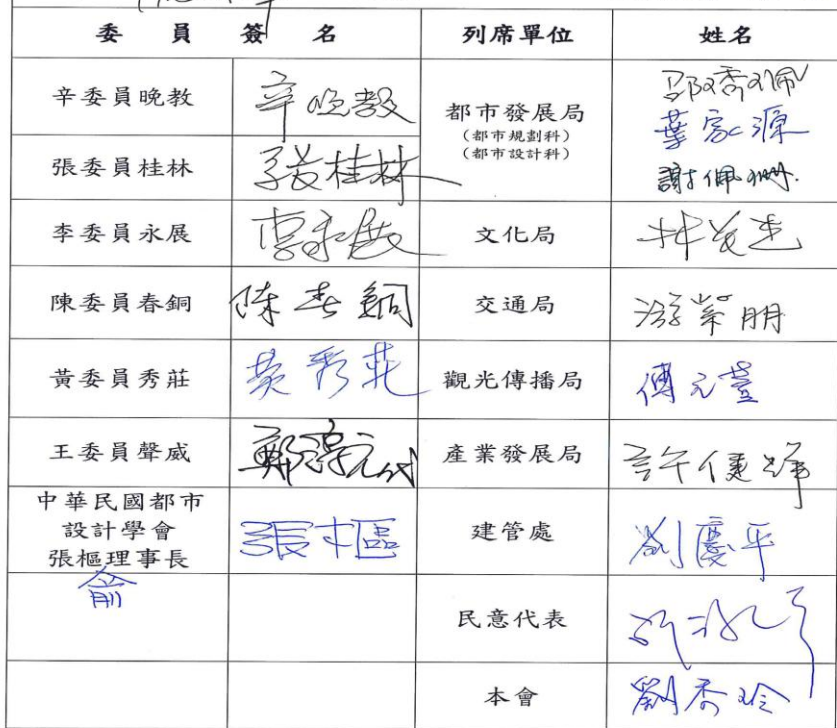 委員簽名 列席單位 姓名
辛委員晚教 辛晚教 都市發展局 邵琇珮
(都市規劃科) 葉家源
(都市設計科) 謝佩珊
張委員桂林 張桂林
李委員永展 李永展 文化局
陳委員春銅 陳春銅 交通局
黃委員秀莊 黃秀莊 觀光傳播局
王委員聲威 產業發展局
中華民國都市
設計學會
張樞理事長 張樞 建管處 劉慶平
俞 民意代表
本會 劉秀玲